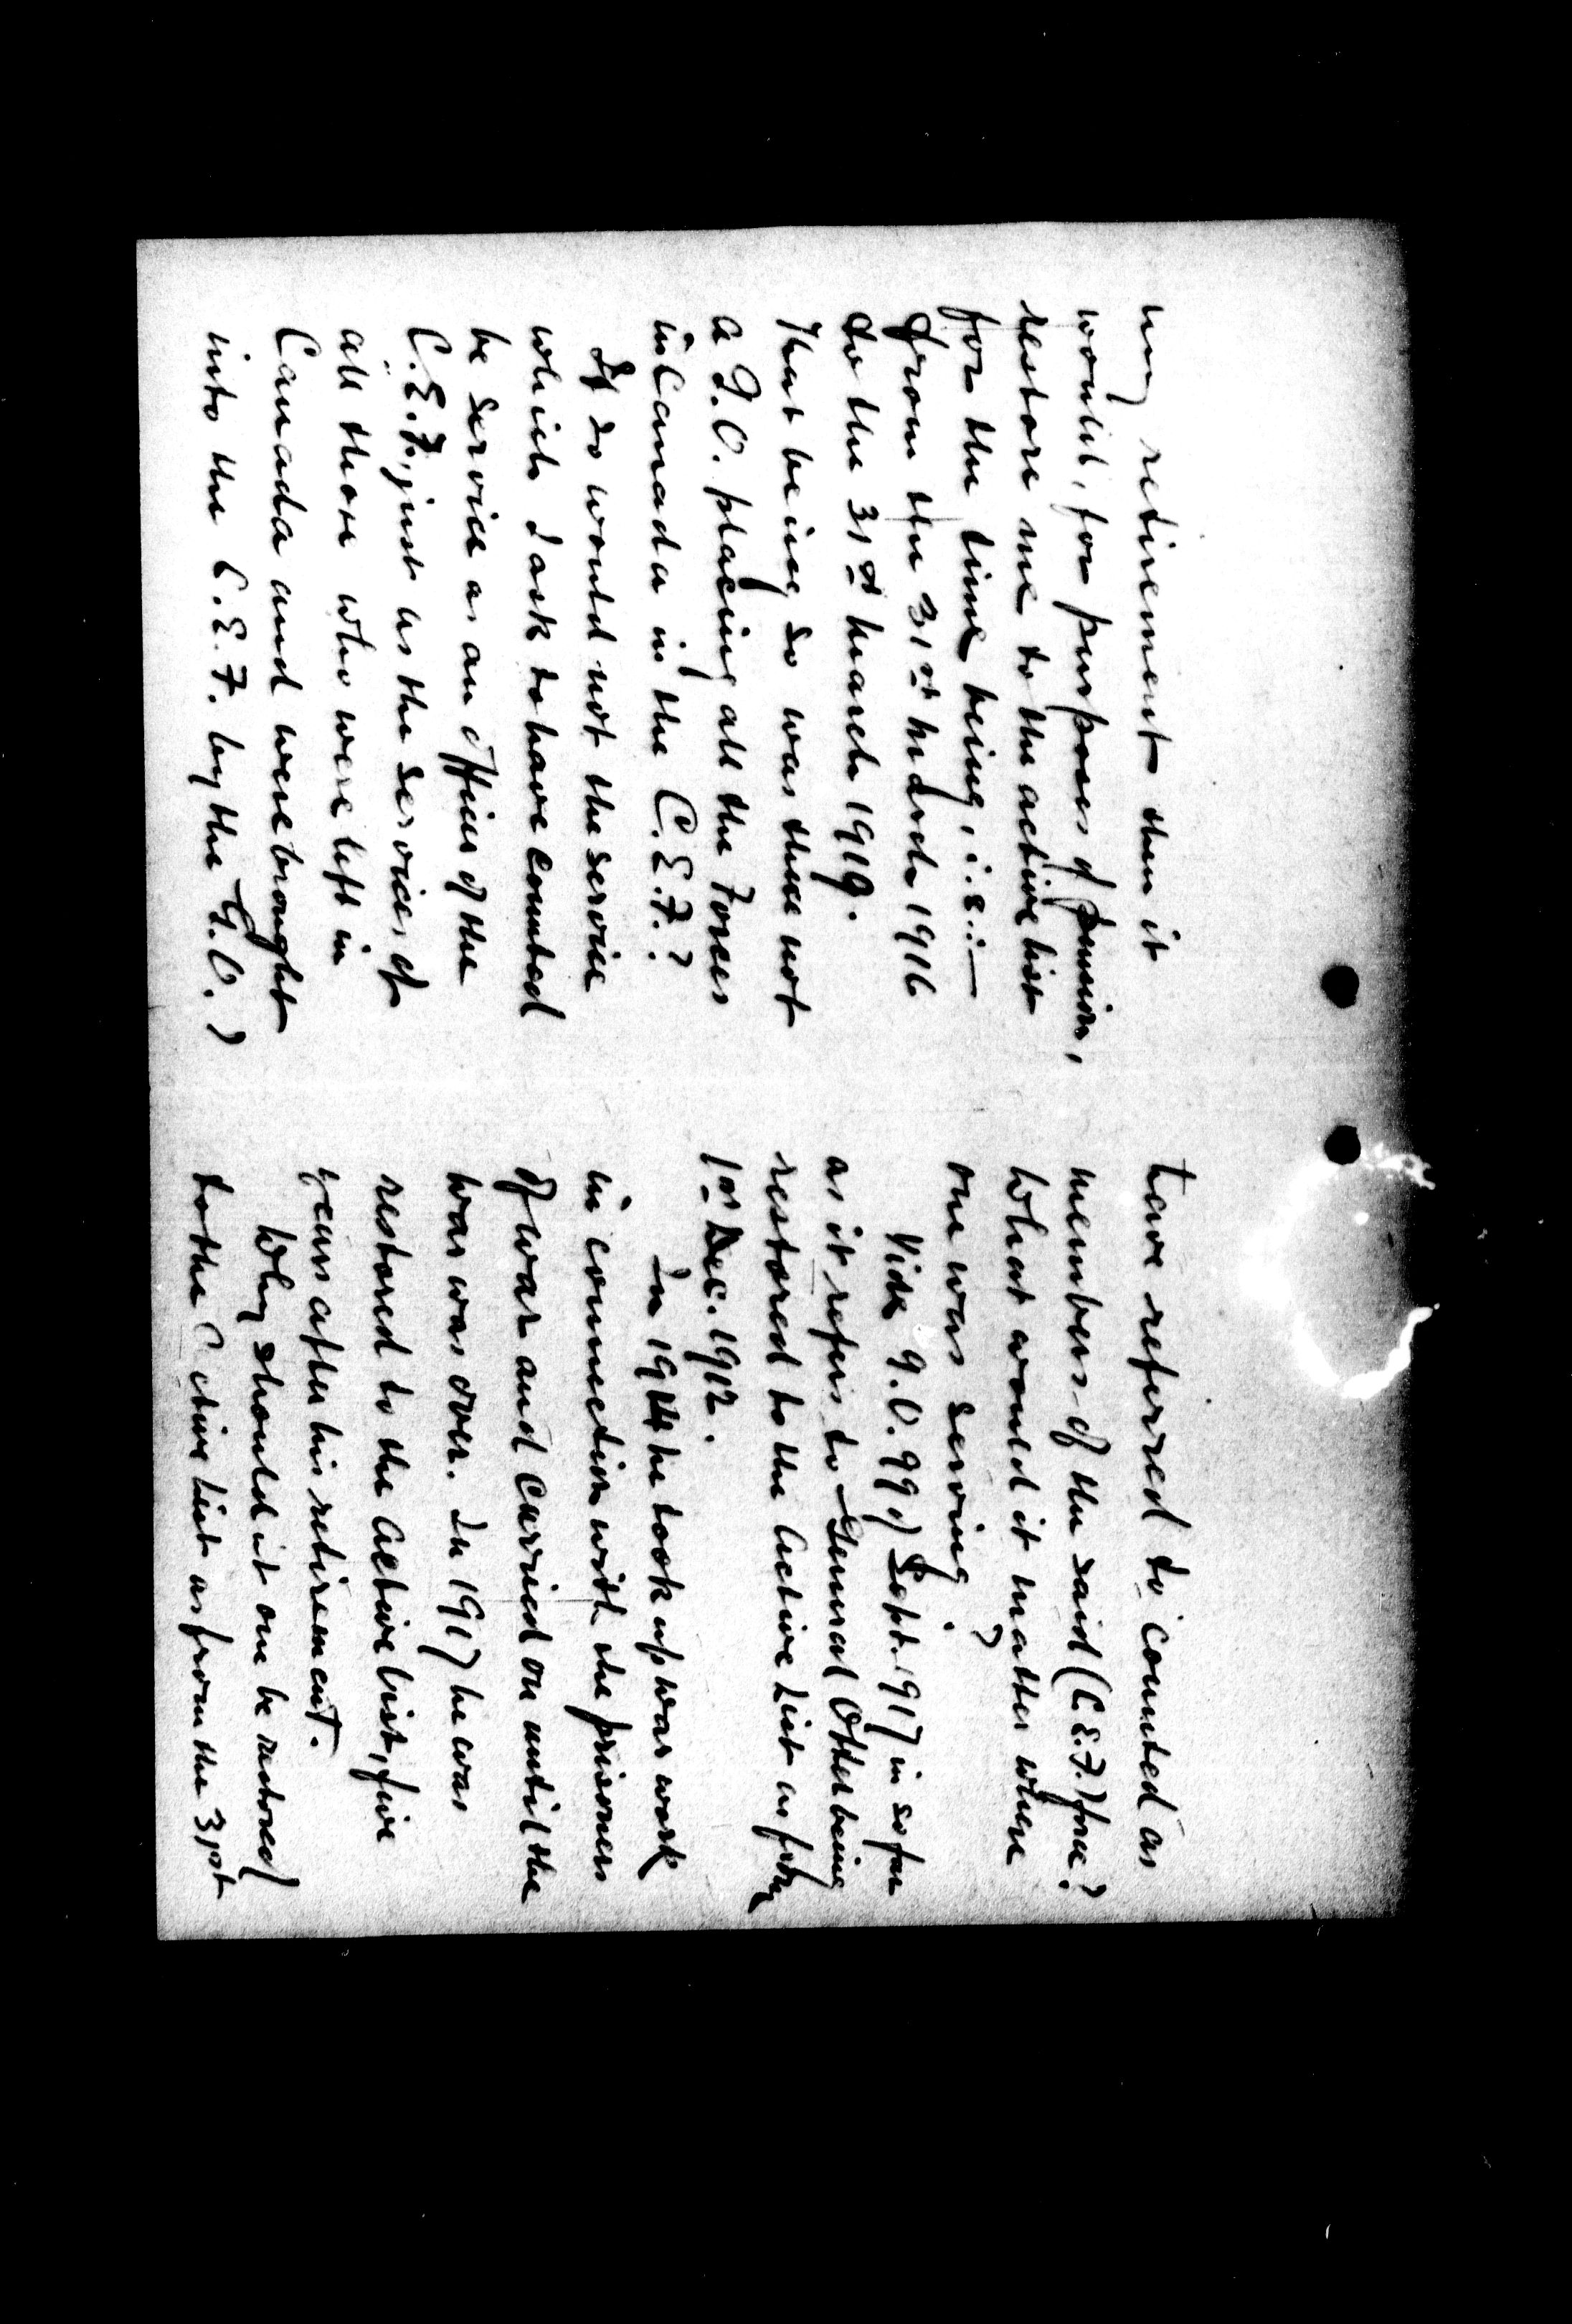 my retirement then it
would, for purposes of pension,
restore me to the active list
for the time being, i.e.:—
from the 31st March 1916
to the 31st March 1919.
That being so was there not
a G.O. placing all the Forces
in Canada in the C.E.F.?
If so would not the service
which I ask to have counted
be service as an officer of the
C.E.F., just as the services of
all those who were left in
Canada and were brought
into the C.E.F. by the G.O.?
have referred to counted as
members of the said (C.E.F.) force?
What would it matter where
one was serving?
Vide G.O. 99 of Sept. 1917 in so far
as it refers to General Otter being
restored to the Active List as from
1st Dec. 1912.
In 1914 he took up war work
in connection with the prisoners
of war and carried on until the
war was over. In 1917 he was
restored to the active list, five
years after his retirement.
Why should it one be restored
to the Active List as from the 31st